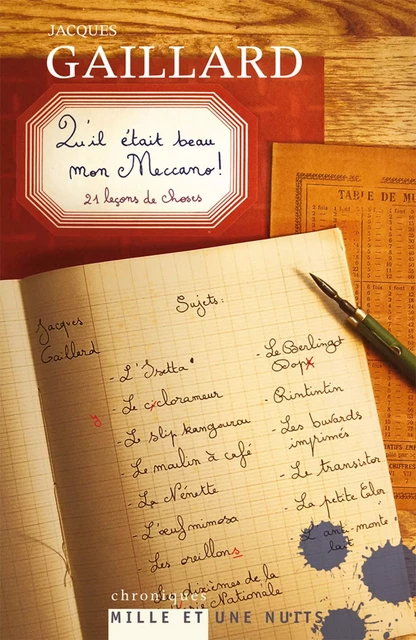 JACQUES
GAILLARD
Qu'il était beau
mon Meccano!
21 leçons de choses
TABLE DE MU
Sujets:
Jacques
Gaillard
- L'Isetta
- Le ciclorameur
y
- Le slip kangourou
- Le moulin à café
- La Nénette
- L'œuf mimosa
- Les oreillons
- Les dixièmes de la
Nationale
- Le Berlingot
Dopx
- Rintintin
- Les buvards
imprimés
- Le transistor
- La petite Caler
- L'anti-monte-
lait
chroniques
MILLE ET UNE NUITS